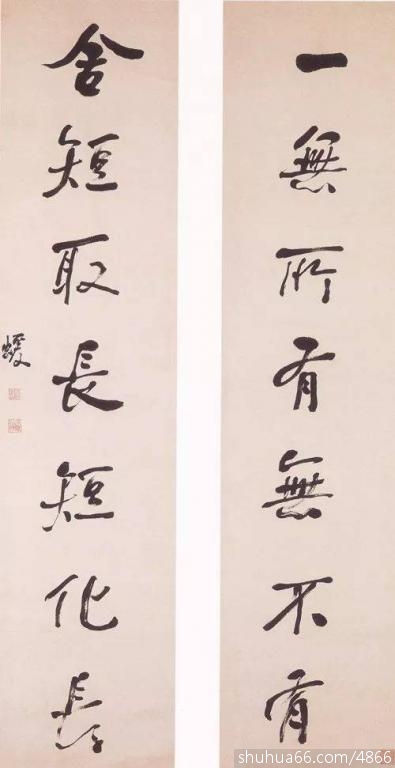 一無所有無不有
舍短取長短化長
shuhua66.com/4866